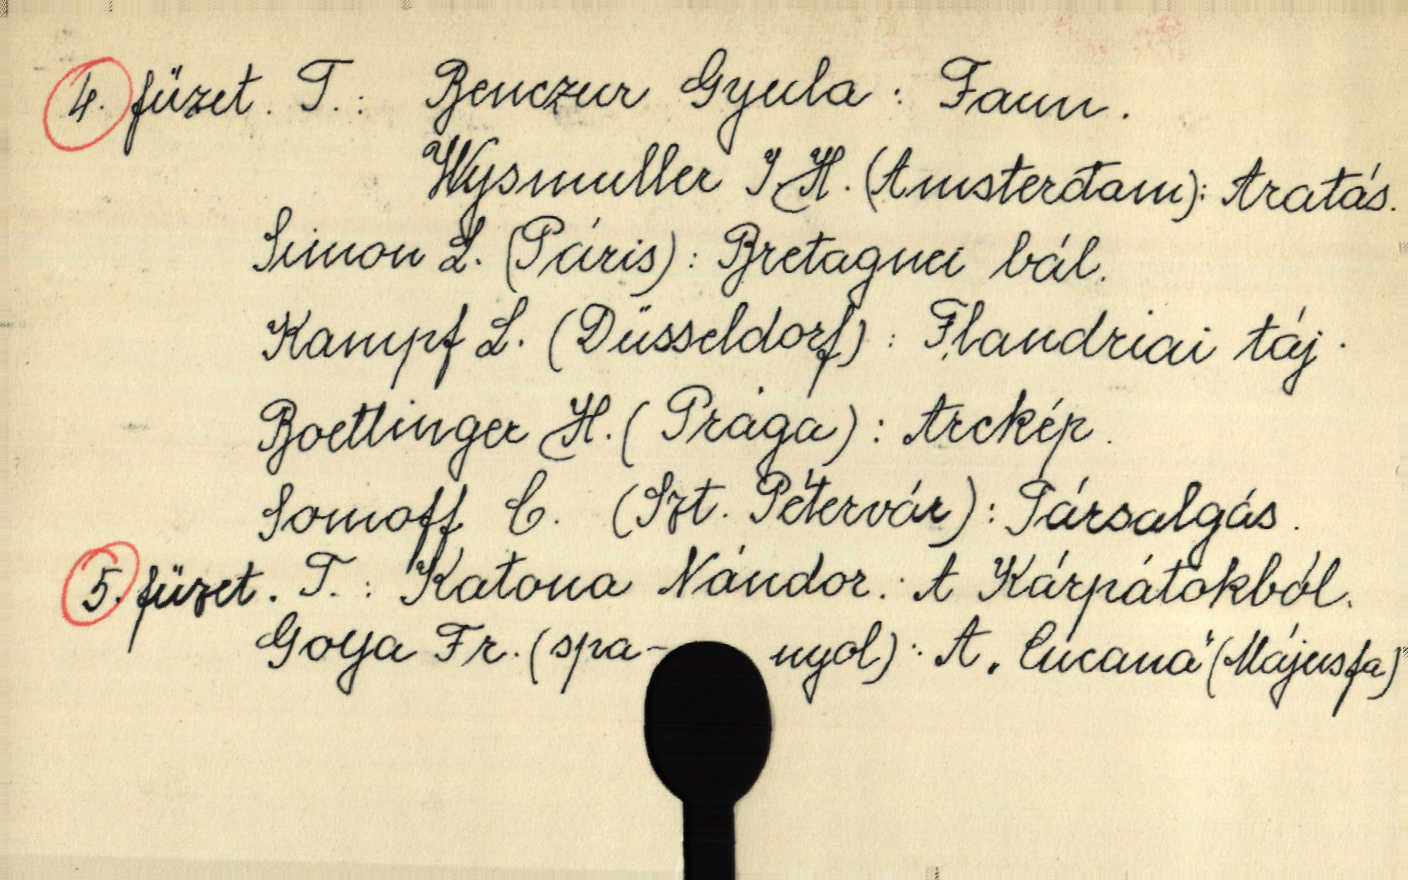 4. füzet. T.: Benczur Gyula: Faun.
Wysmuller J. H. (Amsterdam): Aratás.
Simon L. (Páris): Bretagnei bál.
Kampf L. (Düsseldorf): Flandriai táj.
Boettinger H. (Prága): Arckép.
Somoff C. (Szt. Pétervár): Társalgás.
5. füzet. T.: Katona Nándor: A Kárpátokból.
Goya Fr. (spa- nyol): A „Cucana" (Májusfa)